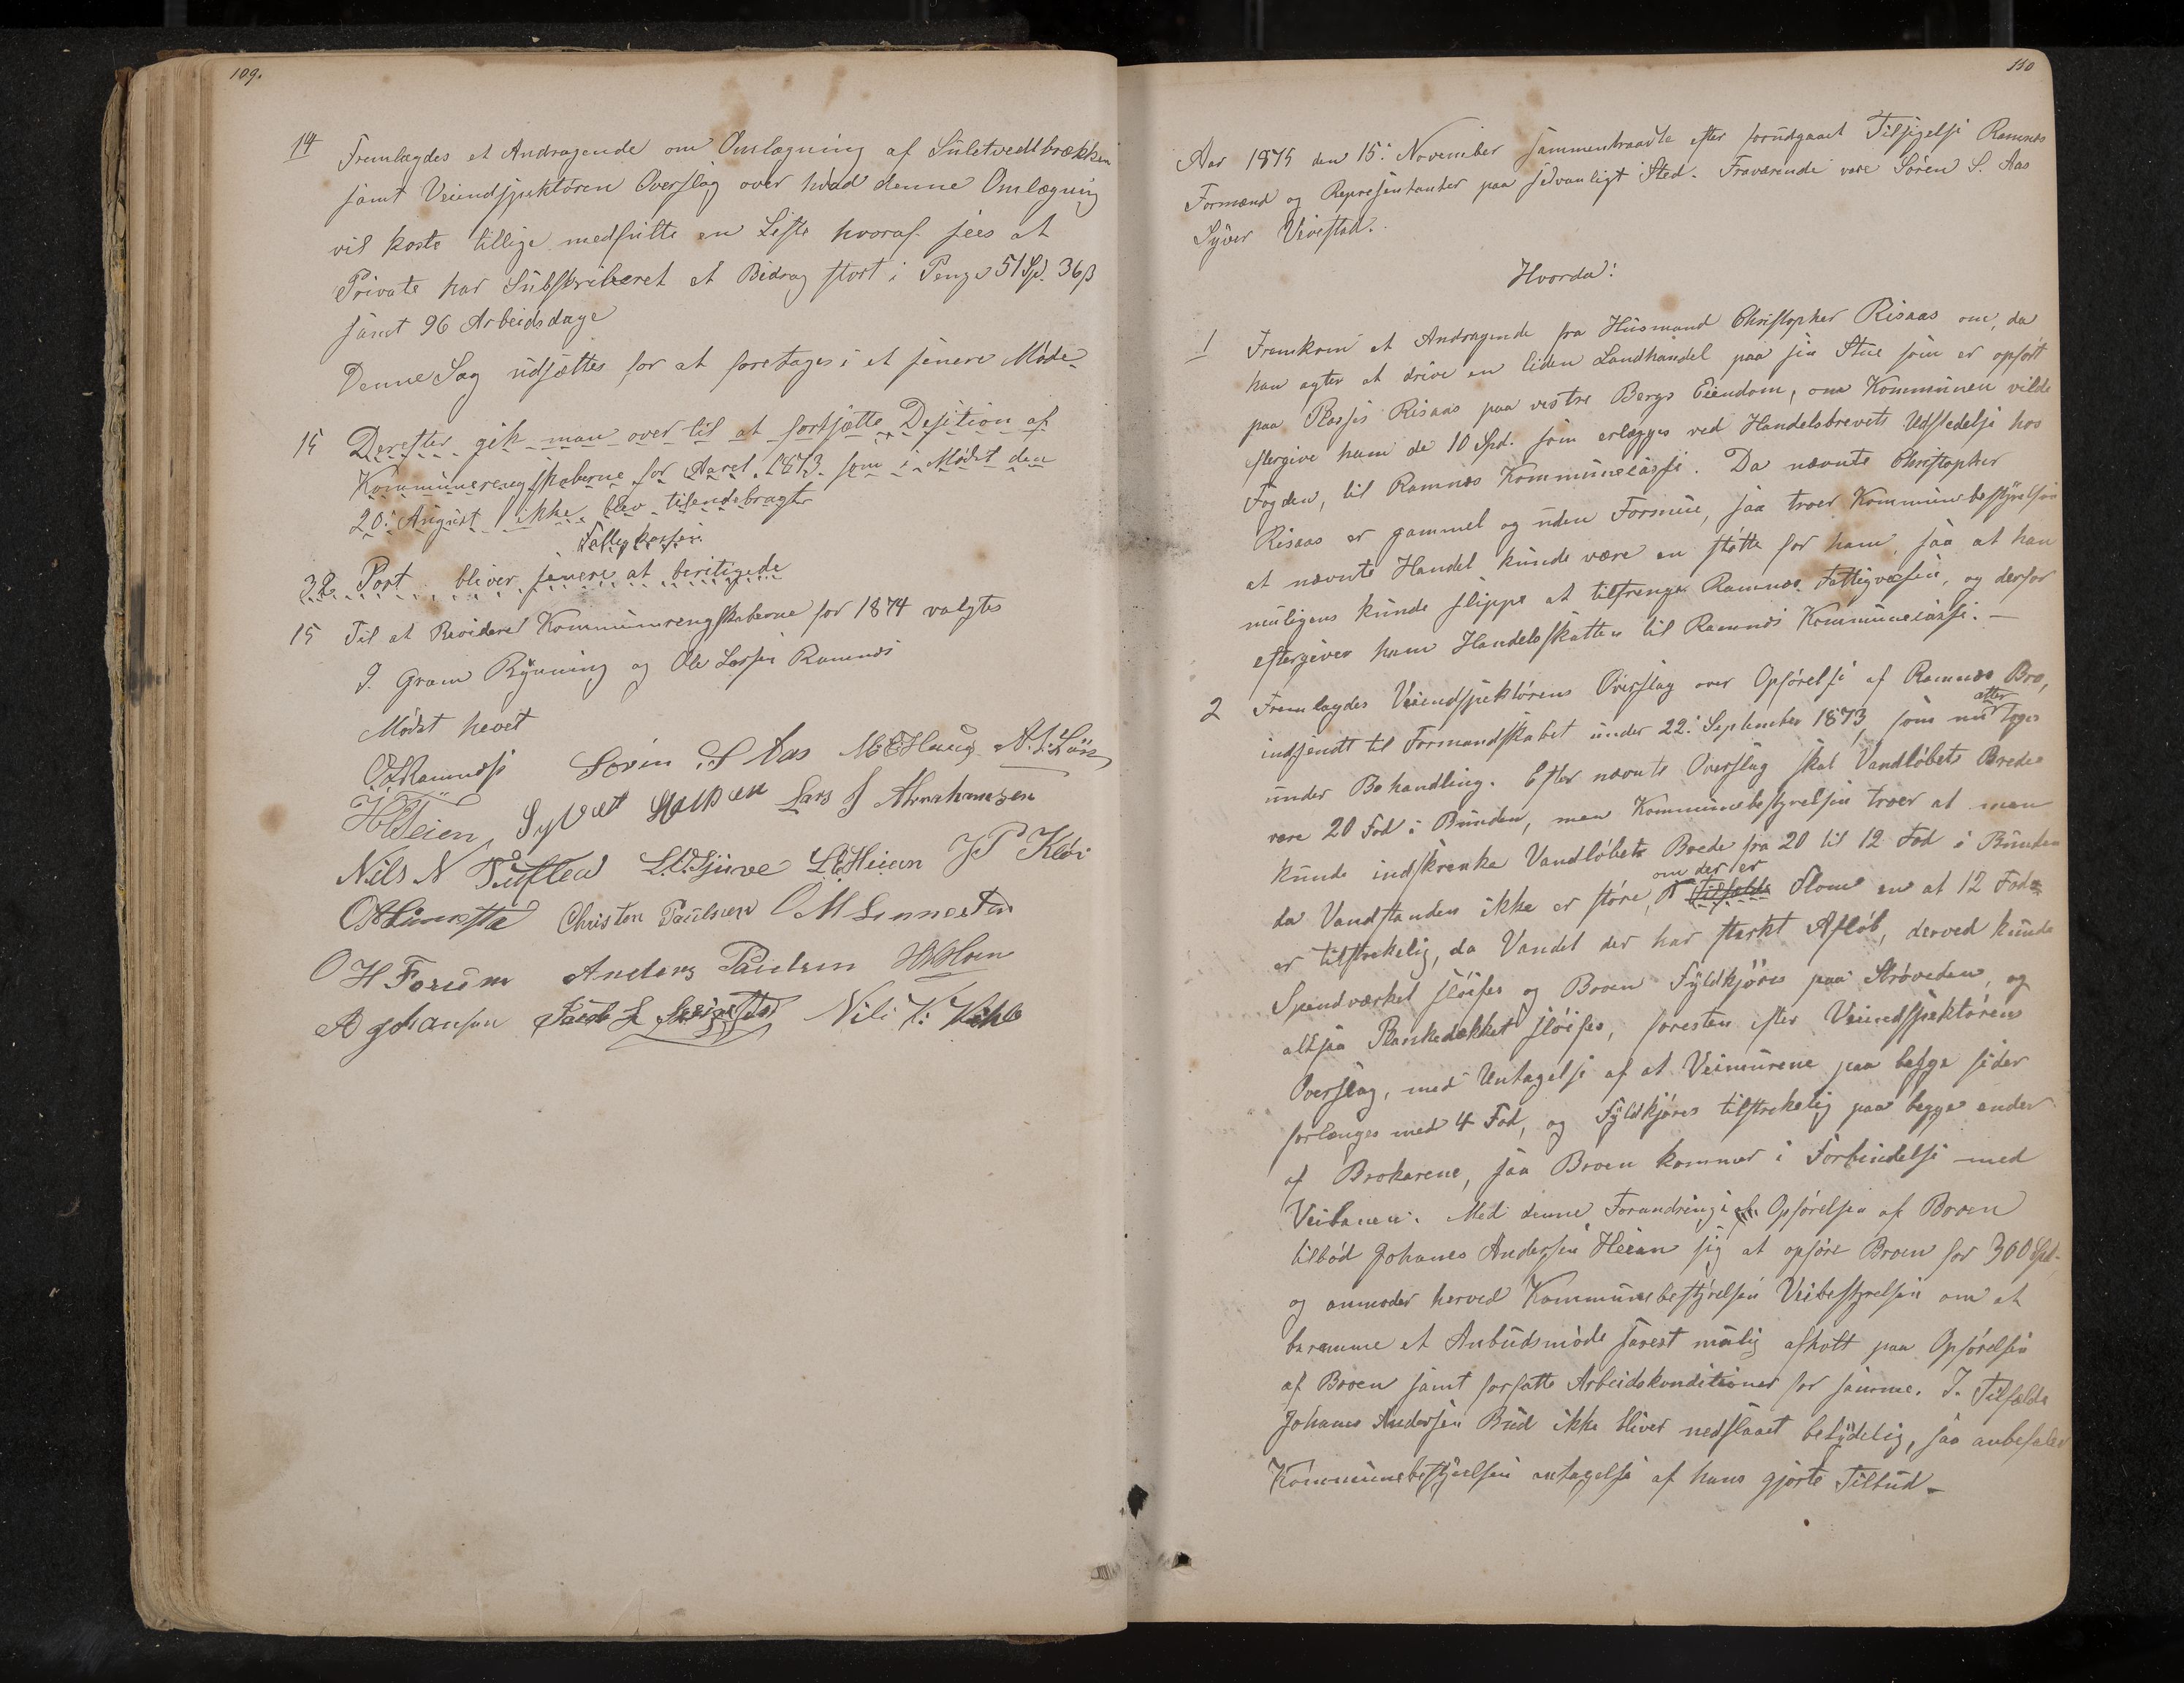 109.
14 Fremlagdes et Andragende om Omlægning af Suletvedtbrækken
samt Veiindspektøren Overslag over hvad denne Omlægning
vil koste tillige medfulte en Liste hvoraf sees at
Private har Subskriberet et Bidrag stort i Penge 51 Sp. 36 ß
samt 96 Arbeidsdage
Denne Sag udsættes for at foretages i et senere Møde.
15 Derefter gik man over til at fortsætte Desition af
Kommuneregnskaberne for Aaret 1873 som i Mødet den
20. August ikke blev tilendebragt
Fattigkassen
32 Post bliver senere at beritigede
15 Til at Revidere Kommuneregnskaberne for 1874 valgtes
J. Gram Rynning og Ole Larsen Ramnes
Mødet hevet
Søren S Aas M. E Haug
Lars J Abrahamsen
Nils N Tufte L. E Heian J P Kløv
Christen Paulsen O M Linnestad
O H Forum Anders Paulsen
A Johansen Nils K:
110
Aar 1875 den 15. November sammentraadte efter forudgaaet Tilsigelse Ramnes
Formænd og Representanter paa sedvanligt Sted. Fraværende vare Søren S. Aas
Syver Vivestad.
Hvorda:
1 Fremkom et Andragende fra Husmand Christopher Risaas om, da
han agter at drive en liden Landhandel paa sin Stue som er opført
paa Pladsen Risaas paa vestre Bergs Eiendom, om Kommunen vilde
eftergive ham de 10 Spd. som erlægges ved Handelsbrevets Udstedelse hos
Fogden, til Ramnes Kommunecasse. Da nævnte Christopher
Risaas er gammel og uden Formue, saa troer Kommunebestyrelsen
at nævnte Handel kunde være en støtte for ham, saa at han
muligens kunde slippe at tiltrenge Ramnes Fattigvæsen, og derfor
eftergiver ham Handelsskatten til Ramnes Kommunecasse. —
2 Fremlagdes Veiindspektørens Overslag over Opførelse af Ramnes Bro,
indsendt til Formandskabet under 22. September 1873, som nu atter toges
under Behandling. Efter nævnte Overslag skal Vandløbets Brede
være 20 Fod i Bunden, men Kommunebestyrelsen troer at man
kunde indskrenke Vandløbets Brede fra 20 til 12 Fod i Bunden
da Vandstanden ikke er støre, om der er Flom en at 12 Fod
er tilstrekelig, da Vandet der har sterkt Afløb, derved kunde
Spendværket sløifes og Broen Fyldkjøres paa Strøveden, og
altsaa Plankedækket sløifes, foresten efter Veiindspektørens
Overslag, med Untagelse af at Veimurene paa begge sider
forlænges med 4 Fod, og Fyldkjøres tilstrekelig paa begge ender
af Brokarene, saa Broen kommer i Forbindelse med
Veibanen. Med denne Forandring i Opførelsen af Broen
tilbød Johanes Andersen Heian sig at opføre Broen for 300 Spd.
og anmoder herved Kommunebestyrelsen Veibestyrelsen om at
beramme et Anbudsmøde snarest mulig afholt paa Opførelsen
af Broen samt forfatte Arbeidskonditioner for samme. I Tilfælde
Johanes Andersen Bud ikke bliver nedslaaet betydelig, saa anbefaler
Kommunebestyrelsen antagelse af hans gjorte Tilbud.